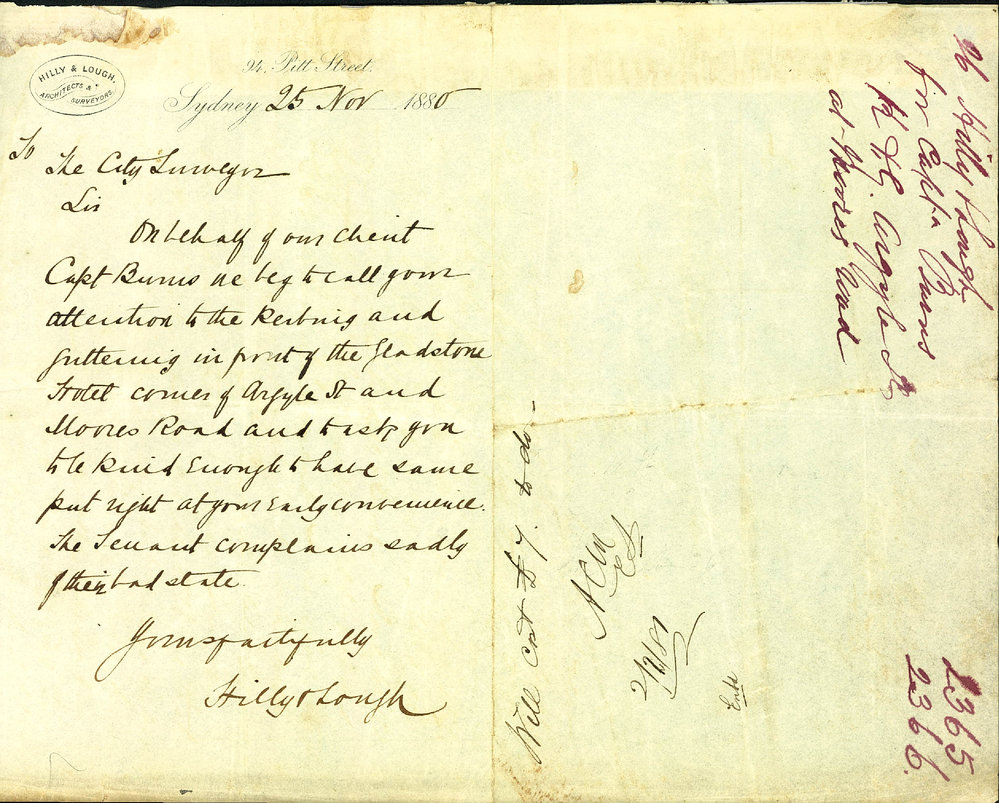 HILLY & LOUGH,
ARCHITECTS &
SURVEYORS.
94, Pitt Street.
Sydney 25 Nov 1880
To
The City Surveyor
Sir
On behalf of our Client
Capt Burns we beg to call your
attention to the Kerbing and
guttering in front of the Gladstone
Hotel corner of Argyle St and
Moores Road and to ask you
to be kind Enough to have same
put right at your Early convenience.
The Tenant complains sadly
of their bad state.
Yours faithfully
Hilly & Lough
Will cost £7. to do—
2/2/81
Hilly & Lough
for Capt'n Burns
K & G. Argyle St
at Moores Road
2365
2366.